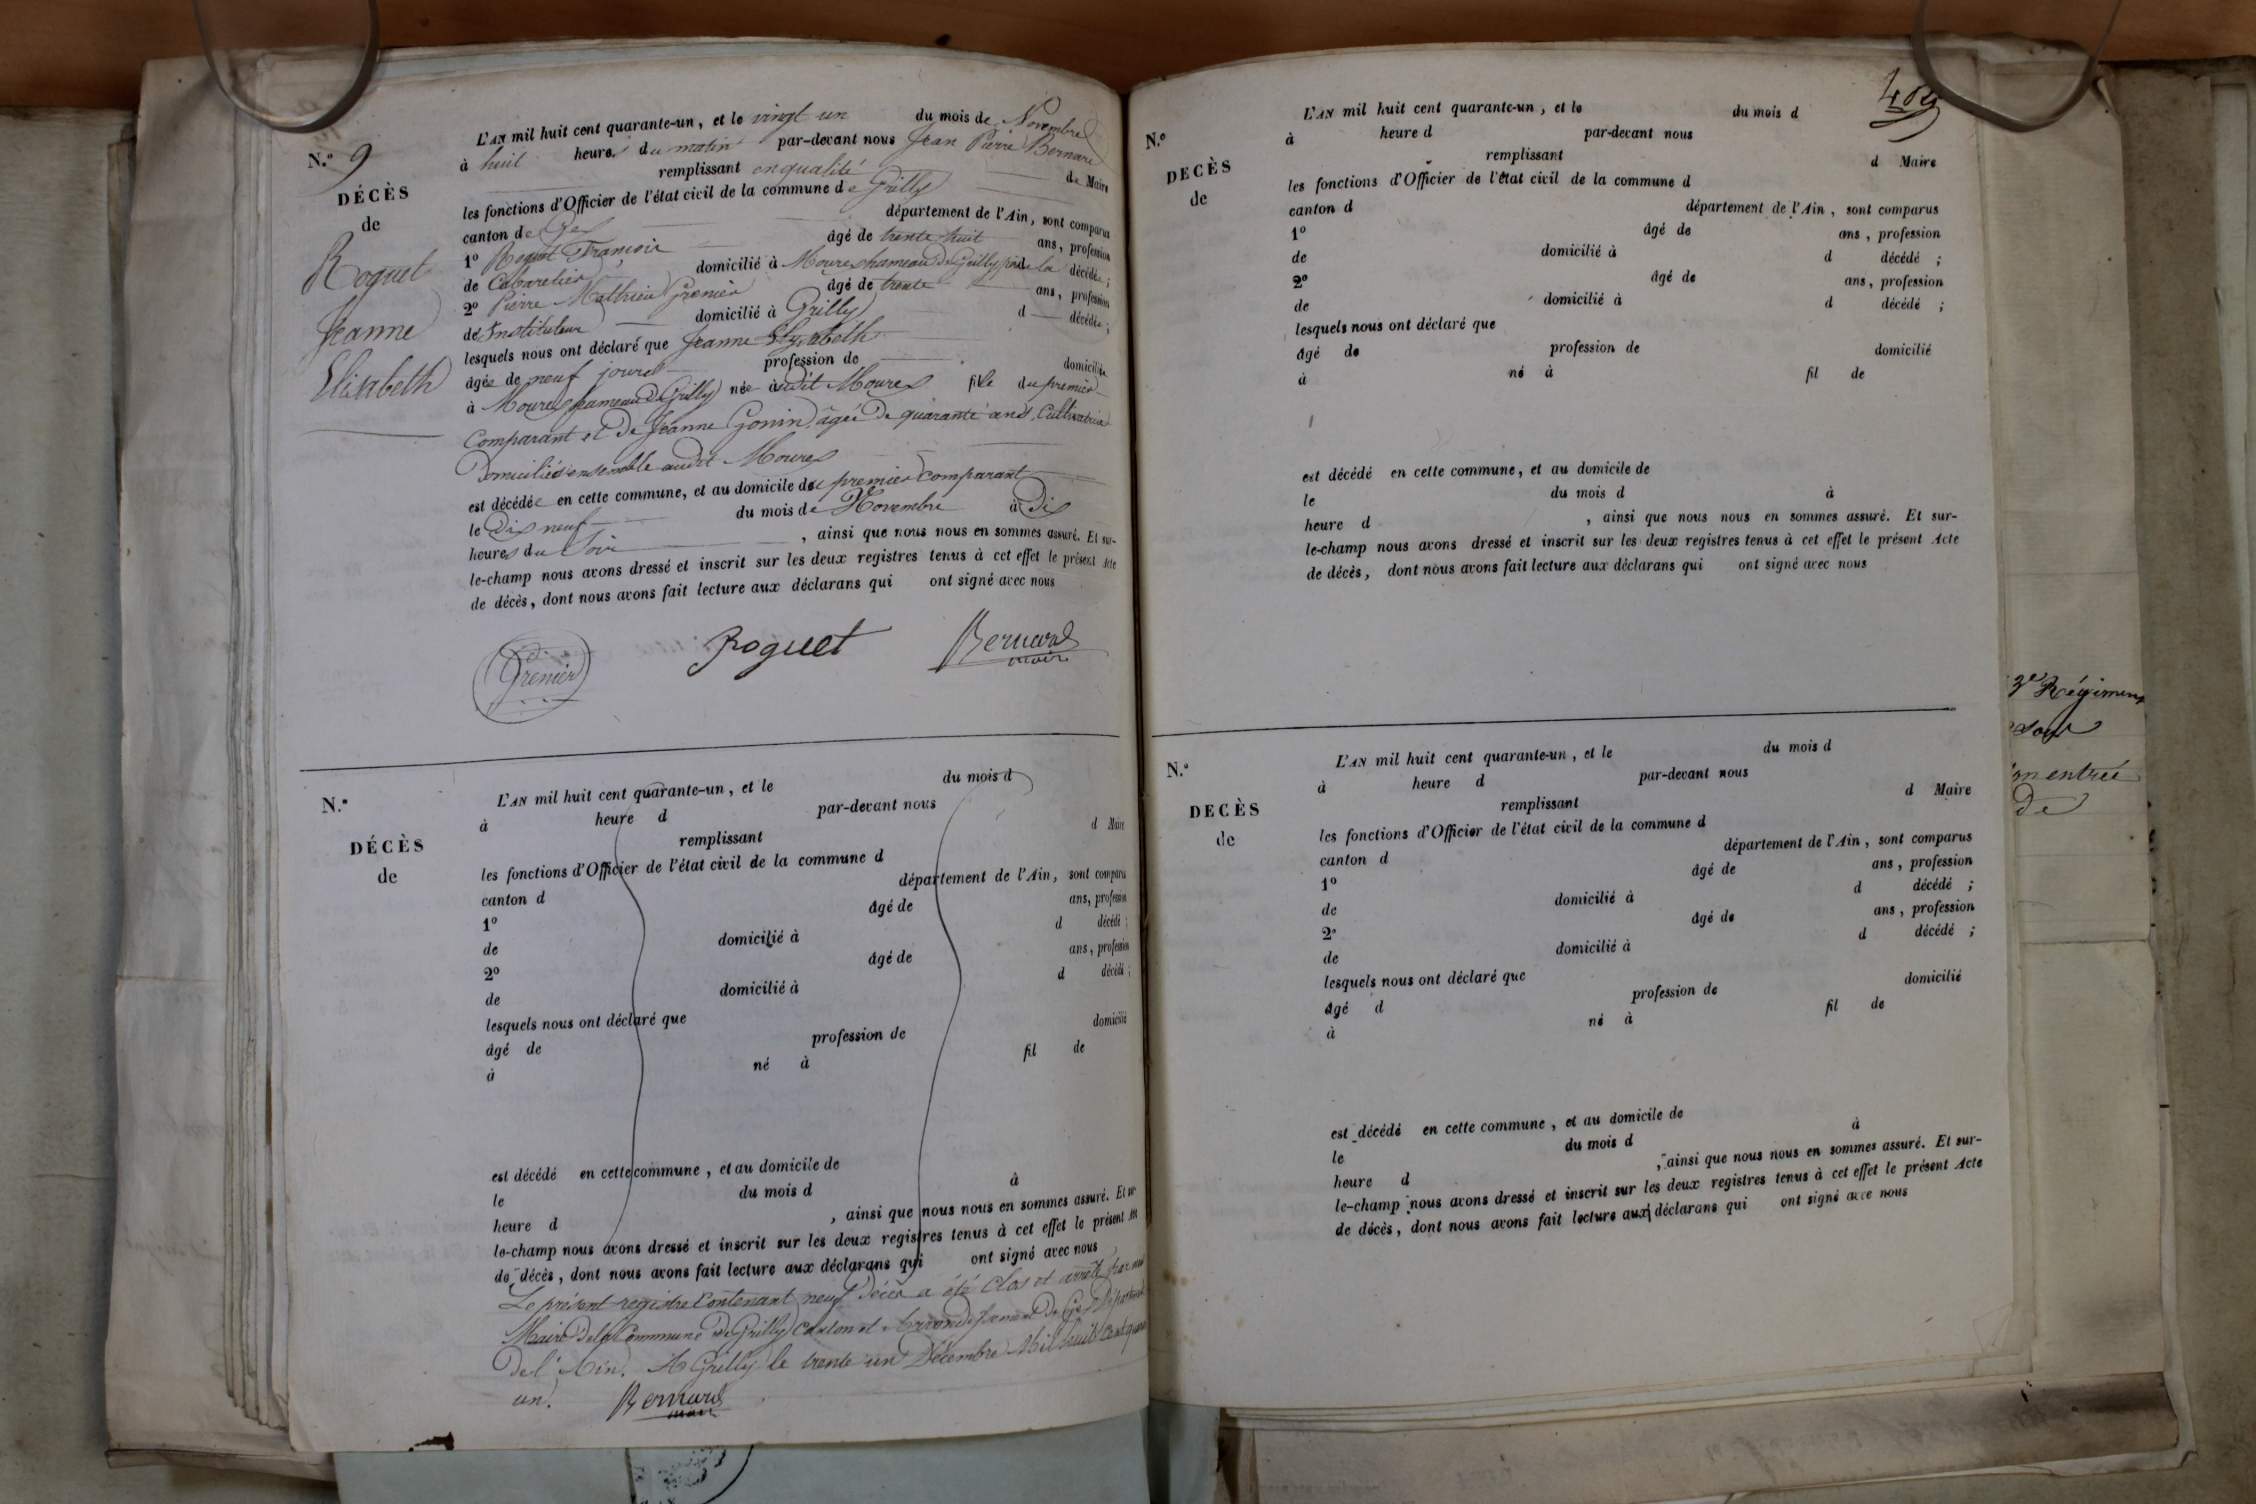 N.º 9
DÉCÈS
de
Roguet
Jeanne
Elisabeth
L'AN mil huit cent quarante-un, et le vingt un du mois de Novembre
à huit heures du matin par-devant nous Jean Pierre Bernard
remplissant en qualité de Maire
les fonctions d'Officier de l'état civil de la commune de Grilly
canton de Gex département de l'Ain, sont comparus
1º Roguet François âgé de trente huit ans, profession
de Cabaretier domicilié à Moures hameau de Grilly père de la décédée;
2º Pierre Mathieu Grenier âgé de trente ans, profession
de Instituteur domicilié à Grilly d décédée;
lesquels nous ont déclaré que Jeanne Elysabeth
âgée de neuf jours profession de domiciliée
à Moures hameau de Grilly née audit Moures fille du premier
Comparant et De Jeanne Gonin, âgée De quarante ans, Cultivatrice
Domiciliés ensemble audit Moures
est décédée en cette commune, et au domicile du premier Comparant
le Dix neuf du mois de Novembre à Dix
heures du Soir, ainsi que nous nous en sommes assuré. Et sur-
le-champ nous avons dressé et inscrit sur les deux registres tenus à cet effet le présent Acte
de décès, dont nous avons fait lecture aux déclarans qui ont signé avec nous
Grenier Roguet Bernard
maire
N.º
DÉCÈS
de
L'AN mil huit cent quarante-un, et le du mois d
à heure d par-devant nous
remplissant d Maire
les fonctions d'Officier de l'état civil de la commune d
canton d département de l'Ain, sont comparus
1º âgé de ans, profession
de domicilié à d décédé;
2º âgé de ans, profession
de domicilié à d décédé;
lesquels nous ont déclaré que
âgé de profession de domicilié
à né à fil de
est décédé en cette commune, et au domicile de
le du mois d à
heure d , ainsi que nous nous en sommes assuré. Et sur-
le-champ nous avons dressé et inscrit sur les deux registres tenus à cet effet le présent Acte
de décès, dont nous avons fait lecture aux déclarans qui ont signé avec nous
Le présent registre Contenant neuf Décès a été Clos et arrêté par nous
Maire De la Commune De Grilly Canton et Arrondissement De Gex Département
De l'Ain. A Grilly le trente un Décembre Mil huit Cent quarante
un.
Bernard
maire
404
N.º
DECÈS
de
L'AN mil huit cent quarante-un, et le du mois d
à heure d par-devant nous
remplissant d Maire
les fonctions d'Officier de l'état civil de la commune d
canton d département de l'Ain, sont comparus
1º âgé de ans, profession
de domicilié à d décédé;
2º âgé de ans, profession
de domicilié à d décédé;
lesquels nous ont déclaré que
âgé de profession de domicilié
à né à fil de
est décédé en cette commune, et au domicile de
le du mois d à
heure d , ainsi que nous nous en sommes assuré. Et sur-
le-champ nous avons dressé et inscrit sur les deux registres tenus à cet effet le présent Acte
de décès, dont nous avons fait lecture aux déclarans qui ont signé avec nous
N.º
DECÈS
de
L'AN mil huit cent quarante-un, et le du mois d
à heure d par-devant nous
remplissant d Maire
les fonctions d'Officier de l'état civil de la commune d
canton d département de l'Ain, sont comparus
1º âgé de ans, profession
de domicilié à d décédé;
2º âgé de ans, profession
de domicilié à d décédé;
lesquels nous ont déclaré que
âgé d profession de domicilié
à né à fil de
est décédé en cette commune, et au domicile de
le du mois d à
heure d , ainsi que nous nous en sommes assuré. Et sur-
le-champ nous avons dressé et inscrit sur les deux registres tenus à cet effet le présent Acte
de décès, dont nous avons fait lecture aux déclarans qui ont signé avec nous
3e Régiment
entrée
De